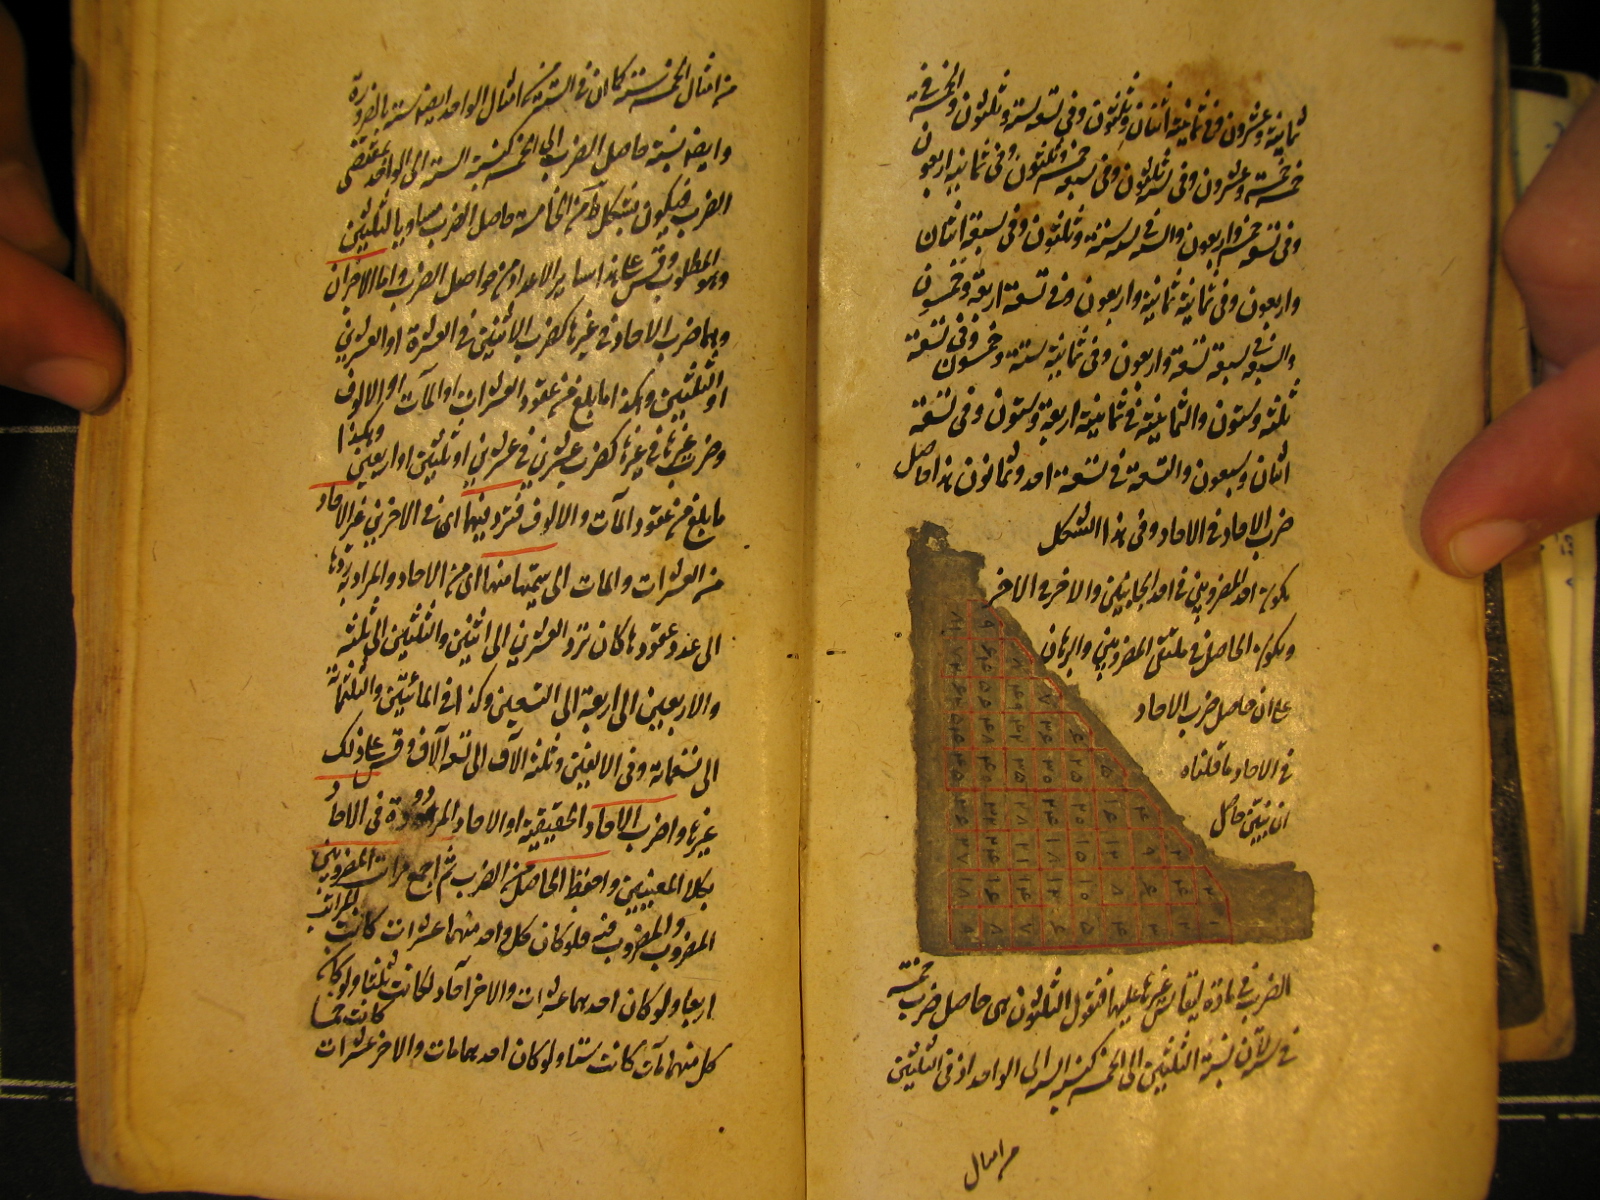 ثمانية وعشرون وفي ثمانية اثنان وثلثون وفي تسعة ستة وثلثون والخمسة في
خمسة خمسة وعشرون وفي ستة ثلثون وفي سبعة خمسة وثلثون وفي ثمانية اربعون
وفي تسعة خمسة واربعون والستة في ستة ستة وثلثون وفي سبعة اثنان
واربعون وفي ثمانية ثمانية واربعون وفي تسعة اربعة وخمسون
والسبعة في سبعة تسعة واربعون وفي ثمانية ستة وخمسون وفي تسعة
ثلثة وستون والثمانية في ثمانية اربعة وستون وفي تسعة
اثنان وسبعون والتسعة في تسعة احد وثمانون هذا حاصل
ضرب الاحاد في الاحاد وفي هذا الشكل
يكون احد المضروبين في احد الجانبين والاخر في الاخر
ويكون الحاصل في ملتقى المضروبين والبرهان
على ان حاصل ضرب الاحاد
في الاحاد ما قلناه
ان نبين حاصل
الضرب في مادة ليقاس غيرها عليها فنقول الثلثون هي حاصل ضرب خمسة
في ستة لان نسبة الثلثين الى الخمسة كنسبة الستة الى الواحد اذ في الثلثين
من امثال
من امثال الخمسة ستة كما ان في الستة من امثال الواحد ايضا ستة بالضرورة
وايضا نسبة حاصل الضرب الى الخمسة كنسبة الستة الى الواحد بمقتضى
الضرب فيكون بشكل ط من الخامسة حاصل الضرب مساويا للثلثين
وهو المطلوب وقس على هذا ساير الاعداد من حواصل الضرب واما الاخران
وهما ضرب الاحاد في غيرها كضرب الاثنين في العشرة او العشرين
او الثلثين وهكذا ما بلغ من عقود العشرات او المآت او الالوف
وضرب غيرها في غيرها كضرب عشرين في عشرين او ثلثين او اربعين وهكذا
ما بلغ من عقود المآت والالوف فترد فيهما اى في الاخرين غير الاحاد
من العشرات والمات الى سميتها منها اى من الاحاد والمراد بردها
الى عدد عقودها كان ترد العشرين الى اثنين والثلثين الى ثلثة
والاربعين الى اربعة الى التسعين وكذا في المائتين والثلثمائة
الى تسعمائة وفي الالفين وثلثة الآف الى تسعة آلاف وقس على ذلك
غيرها واضرب الاحاد الحقيقية او الاحاد المردودة في الاحاد
بكلا المعنيين واحفظ الحاصل من الضرب ثم اجمع مراتب المضروبين
المضروب والمضروب فيه فلو كان كل واحد منهما عشرات كانت المراتب
اربعا ولو كان احدهما عشرات والاخر آحاد لكانت ثلثا ولو كان
كل منهما مآت كانت ستا ولو كان احدهما مات والاخر عشرات كانت خمسا